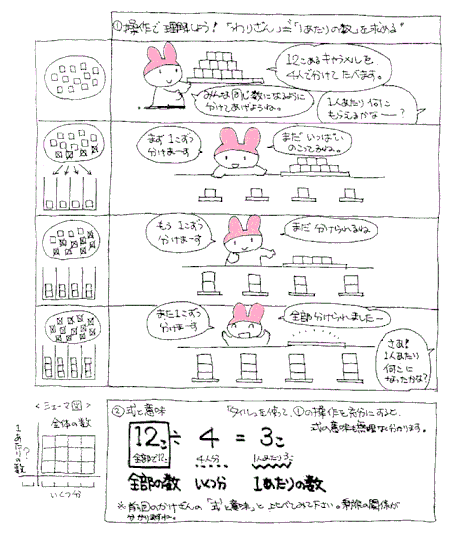 ①操作で理解しよう！「わりざん」＝「1あたりの数」を求める
12こあるキャラメルを
4人で分けてたべます。
みんな同じ数になるように
分けてあげようね。
1人あたり何こ
もらえるかなー？
まず1こずつ
分けまーす
まだいっぱい
のこってるね。
もう1こずつ
分けまーす
まだ分けられるね
また1こずつ
分けまーす
全部分けられましたー
さあ！
1人あたり
何こに
なったかな？
<シェーマ図>
全体の数
1あたりの数
?
いくつ分
②式と意味
「タイル」を使って、①の操作を充分にすると、
式の意味も無理なく分かります。
12こ ÷ 4 = 3こ
全部で12こ 4人分 1人あたり3こ
全部の数 いくつ分 1あたりの数
※前回のかけざんの「式と意味」と比べてみて下さい。の関係が
分かりますね。